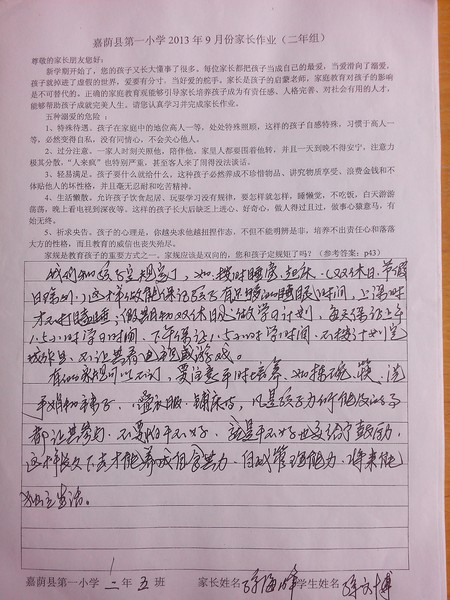 嘉荫县第一小学2013年9月份家长作业（二年组）
尊敬的家长朋友您好：
新学期开始了，您的孩子又长大懂事了很多。每位家长都把孩子当成自己的最爱，当爱滑向了溺爱，
孩子就掉进了虚假的世界，爱要有分寸，当好爱的舵手。家长是孩子的启蒙老师，家庭教育对孩子的影响
是不可替代的。正确的家庭教育观能够引导家长培养孩子成为有责任感、人格完善、对社会有用的人才，
能够帮助孩子成就完美人生。请您认真学习并完成家长作业。
五种溺爱的危险：
1、特殊待遇。孩子在家庭中的地位高人一等，处处特殊照顾，这样的孩子自感特殊，习惯于高人一
等，必然变得自私，没有同情心，不会关心他人。
2、过分注意。一家人时刻关照他，陪伴他、家里人都要围着他转，并且一天到晚不得安宁，注意力
极其分散，“人来疯”也特别严重，甚至客人来了闹得没法谈话。
3、轻易满足。孩子要什么就给什么，这种孩子必然养成不珍惜物品、讲究物质享受、浪费金钱和不
体贴他人的坏性格，并且毫无忍耐和吃苦精神。
4、生活懒散。允许孩子饮食起居、玩耍学习没有规律，要怎样就怎样，睡懒觉，不吃饭，白天游游
荡荡，晚上看电视到深夜等。这样的孩子长大后缺乏上进心、好奇心，做人得过且过，做事心猿意马，有
始无终。
5、祈求央告。孩子的心理是，你越央求他越扭捏作态，不但不能明辨是非，培养不出责任心和落落
大方的性格，而且教育的威信也丧失殆尽。
家规是家庭教育的重要方式之一，家规应该是双向的，您和孩子定规矩了吗？（参考答案：p43）
我们和孩子定规矩了，如：按时睡觉、起床（双休日、节假
日除外）这样做能保证孩子有足够的睡眠时间，上课时
才不打瞌睡；假期和双休日，做学习计划，每天保证上午
1.5小时学习时间，下午保证1.5小时学习时间，不按计划完
成作业，不让其看电视或游戏。
有的家规可以不订，要注意平时培养，如捡碗、筷、洗
手绢和袜子、叠衣服、铺床等，凡是孩子力所能及的事
都让其参与，不要怕干不好，就是干不好也要给予鼓励，
这样长久下去才能养成自食其力、自我管理能力，将来能
独立生活。
嘉荫县第一小学 二年五班 家长姓名 学生姓名